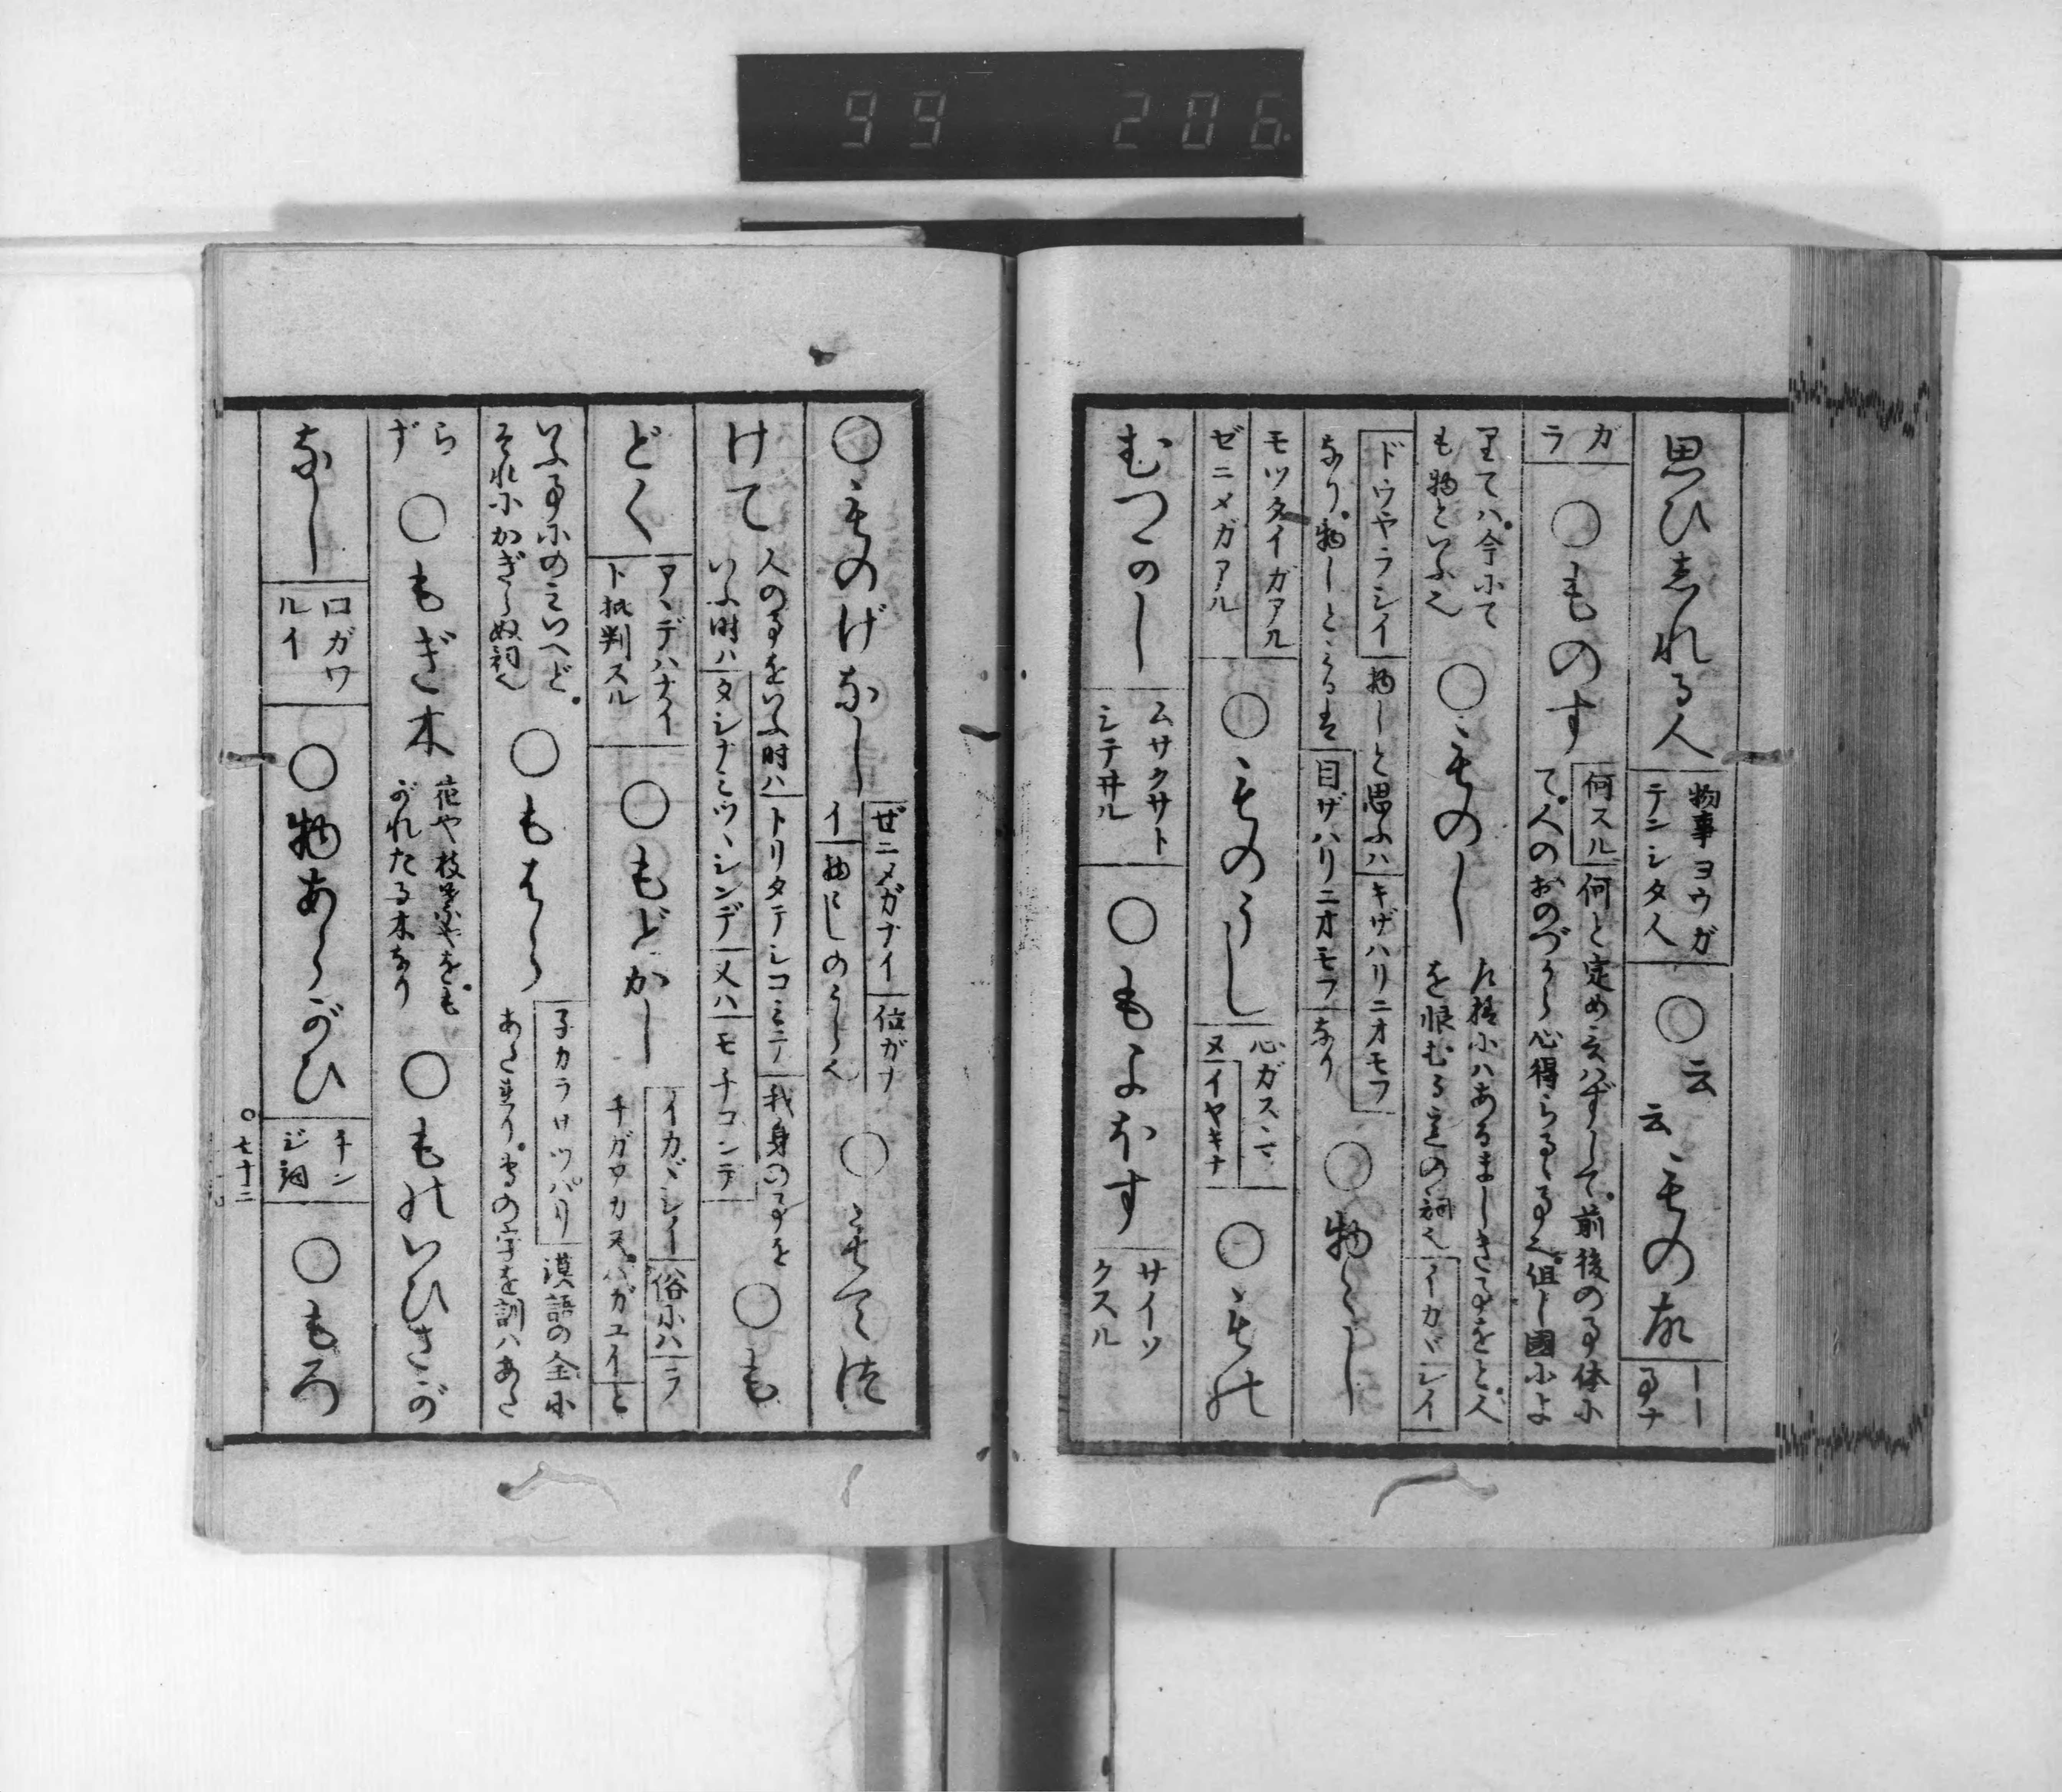 99 206
思ひしれる人
物事ヨウガ
テンシタ人
○云云ものか
ガ
ラ
○ものす
何スル 何と定め云ハずして。前後の事体に
て。人のおのづから心得らるゝ事也。但し國によ
りてハ。今にて
も物といふ也
○ものし
大抵にハあるましきことをと。人
を恨むる意の詞也 イカヾシイ
ドウヤラシイ 物しと思ふハ キザハリニオモフ
なり。物しとみるは 目ザハリニオモフ なり
○物々し
モツタイガアル
ゼニメガアル
○ものうし
心ガスヽマ
ヌ イヤキナ
○もの
むつかし
ムサクサト
シテ井ル
○もよほす
サイソ
クスル
○ものげなし
ゼニメガナイ 位ガナ
イ 物にしのうら也
○もてつ
けて
人の事をいふ時ハ トリタテシコミテ 我身の事を
いふ時ハ タシナミツヽシンデ 又ハ モチコンデ
○も
どく
アヽデハナイ
ト批判スル
○もどかし
イカヾシイ 俗にハ ラ
チガアカヌ。ハガユイ と
いふ事にのミいへど。
それにかぎらぬ詞也
○もはら
子カラハツパリ 漢語の全に
あたれり。専の字を訓ハあた
らず
○もぎ木
花や枝葉やをも
がれたる木なり
○ものいひさが
なし
口ガワ
ルイ
○物あらがひ
チン
ジ詞
○もろ
○七十二